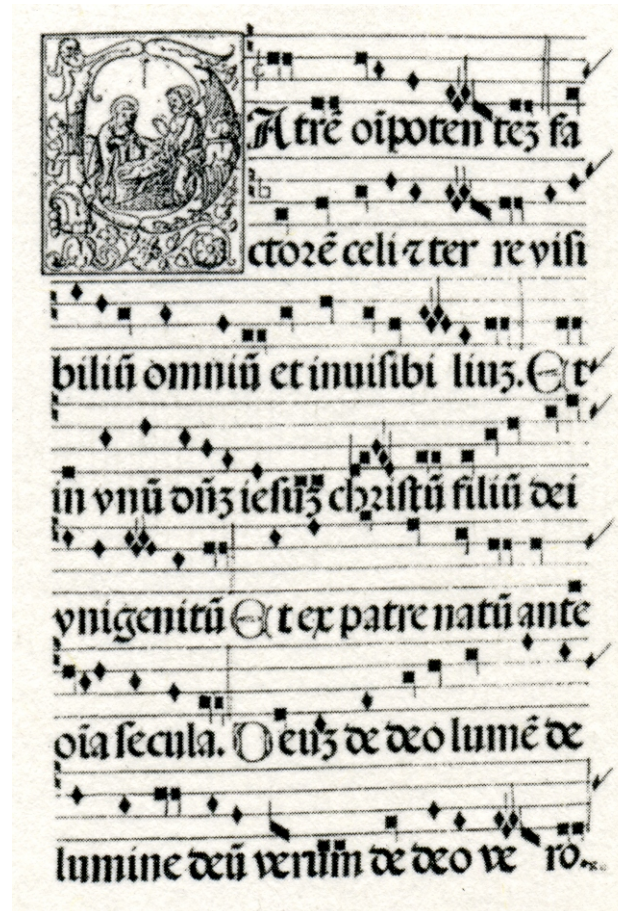 PAtrē oīpoten tezꝫ fa
ctorē celi ⁊ ter re visi
biliū omniū et inuisibi liuꝫ. Et
in vnū dn̄ꝫ iesuꝫ christū filiū dei
vnigenitū Et ex patre natū ante
oīa secula. Deuꝫ de deo lumē de
lumine deū verum de deo ve ro.